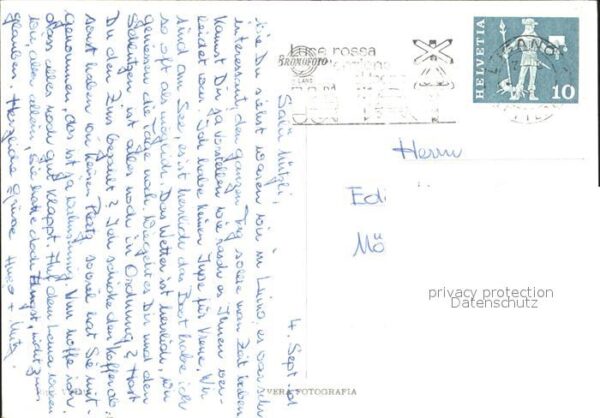 HELVETIA
10
LUGANO
la se rossa
BROMOFOTO
MILANO
Herrn
Edi
Mö
privacy protection
Datenschutz
VERA FOTOGRAFIA
4. Sept. 61
Wie Du siehst waren wir in Luino, es war sehr
interessant, den ganzen Tag sollte man Zeit haben
kannst Du ja vorstellen wie rasch es Ihnen ver-
leidet war. Ich habe keinen Jupe für Vrene. Wir
sind am See, es ist herrlich das Boot habe ich
so oft als möglich. Das Wetter ist herrlich, wir
geniessen die Tage noch. Wie geht es Dir und den
ist alles noch in Ordnung? Hast
Du den Zins bezahlt? Ich schicke den Koffer ab.
sonst haben wir keinen Platz soviel hat Sie mit-
genommen, das ist ja Wahnsinnig. Nun hoffe ich
dass alles noch gut klappt. Auf dem Lema waren
wir, aber allein, sie hatte doch Angst, nicht zum
glauben. Herzliche Grüsse